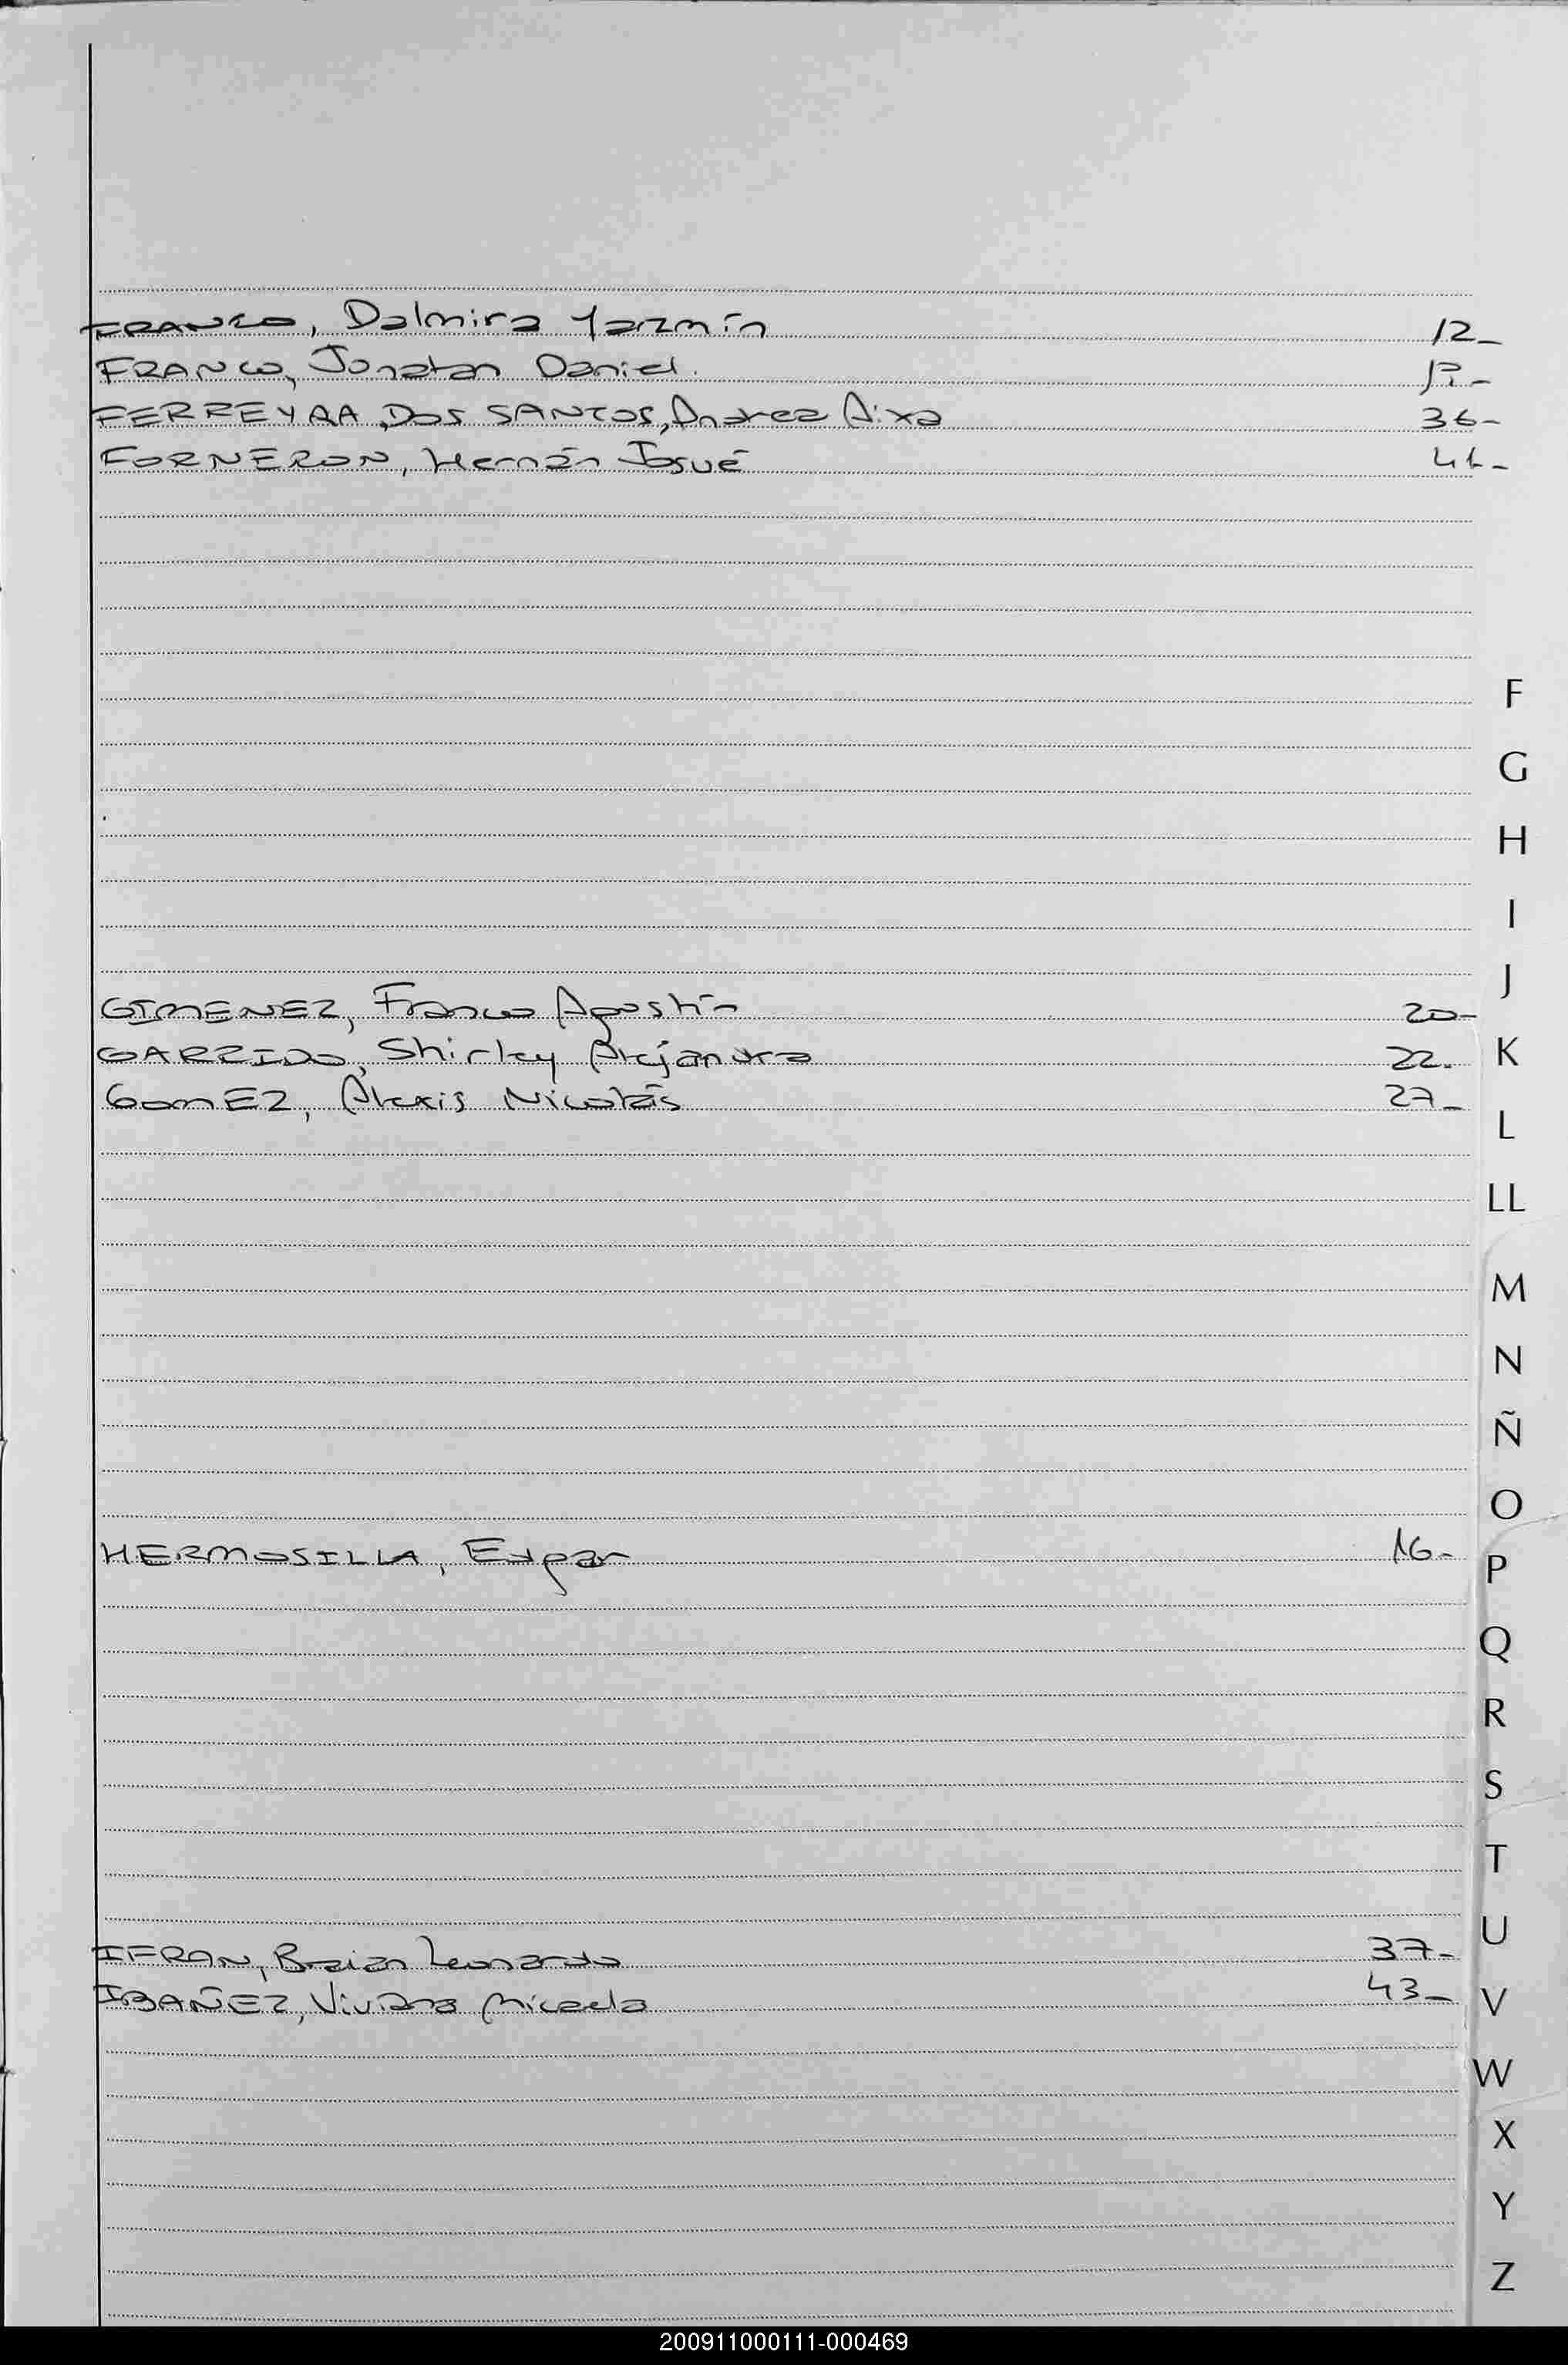 FRANCO, Dalmira Yazmín 12_
FRANCO, Jonatan Daniel.
FERREYRA DOS SANTOS, Andrea Aixa 36-
FORNERON, Hernán Josué
F
G
H
I
J
GIMENEZ, Franco Agostín 20-
GARRIDO, Shirley Alejandra 22.
K
GomEZ, Alexis Nicolás 27_
L
LL
M
N
Ñ
O
HERMOSILLA, Edgar 16-
P
Q
R
S
T
U
IFRAN, Braian Leonardo 37-
IBAÑEZ, Viviana Micaela 43_
V
W
X
Y
Z
200911000111-000469